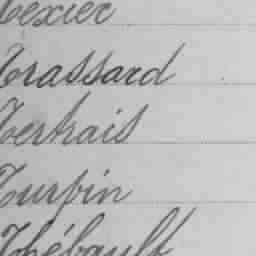 Texier
Trassard
Tertrais
Turpin
Thébault